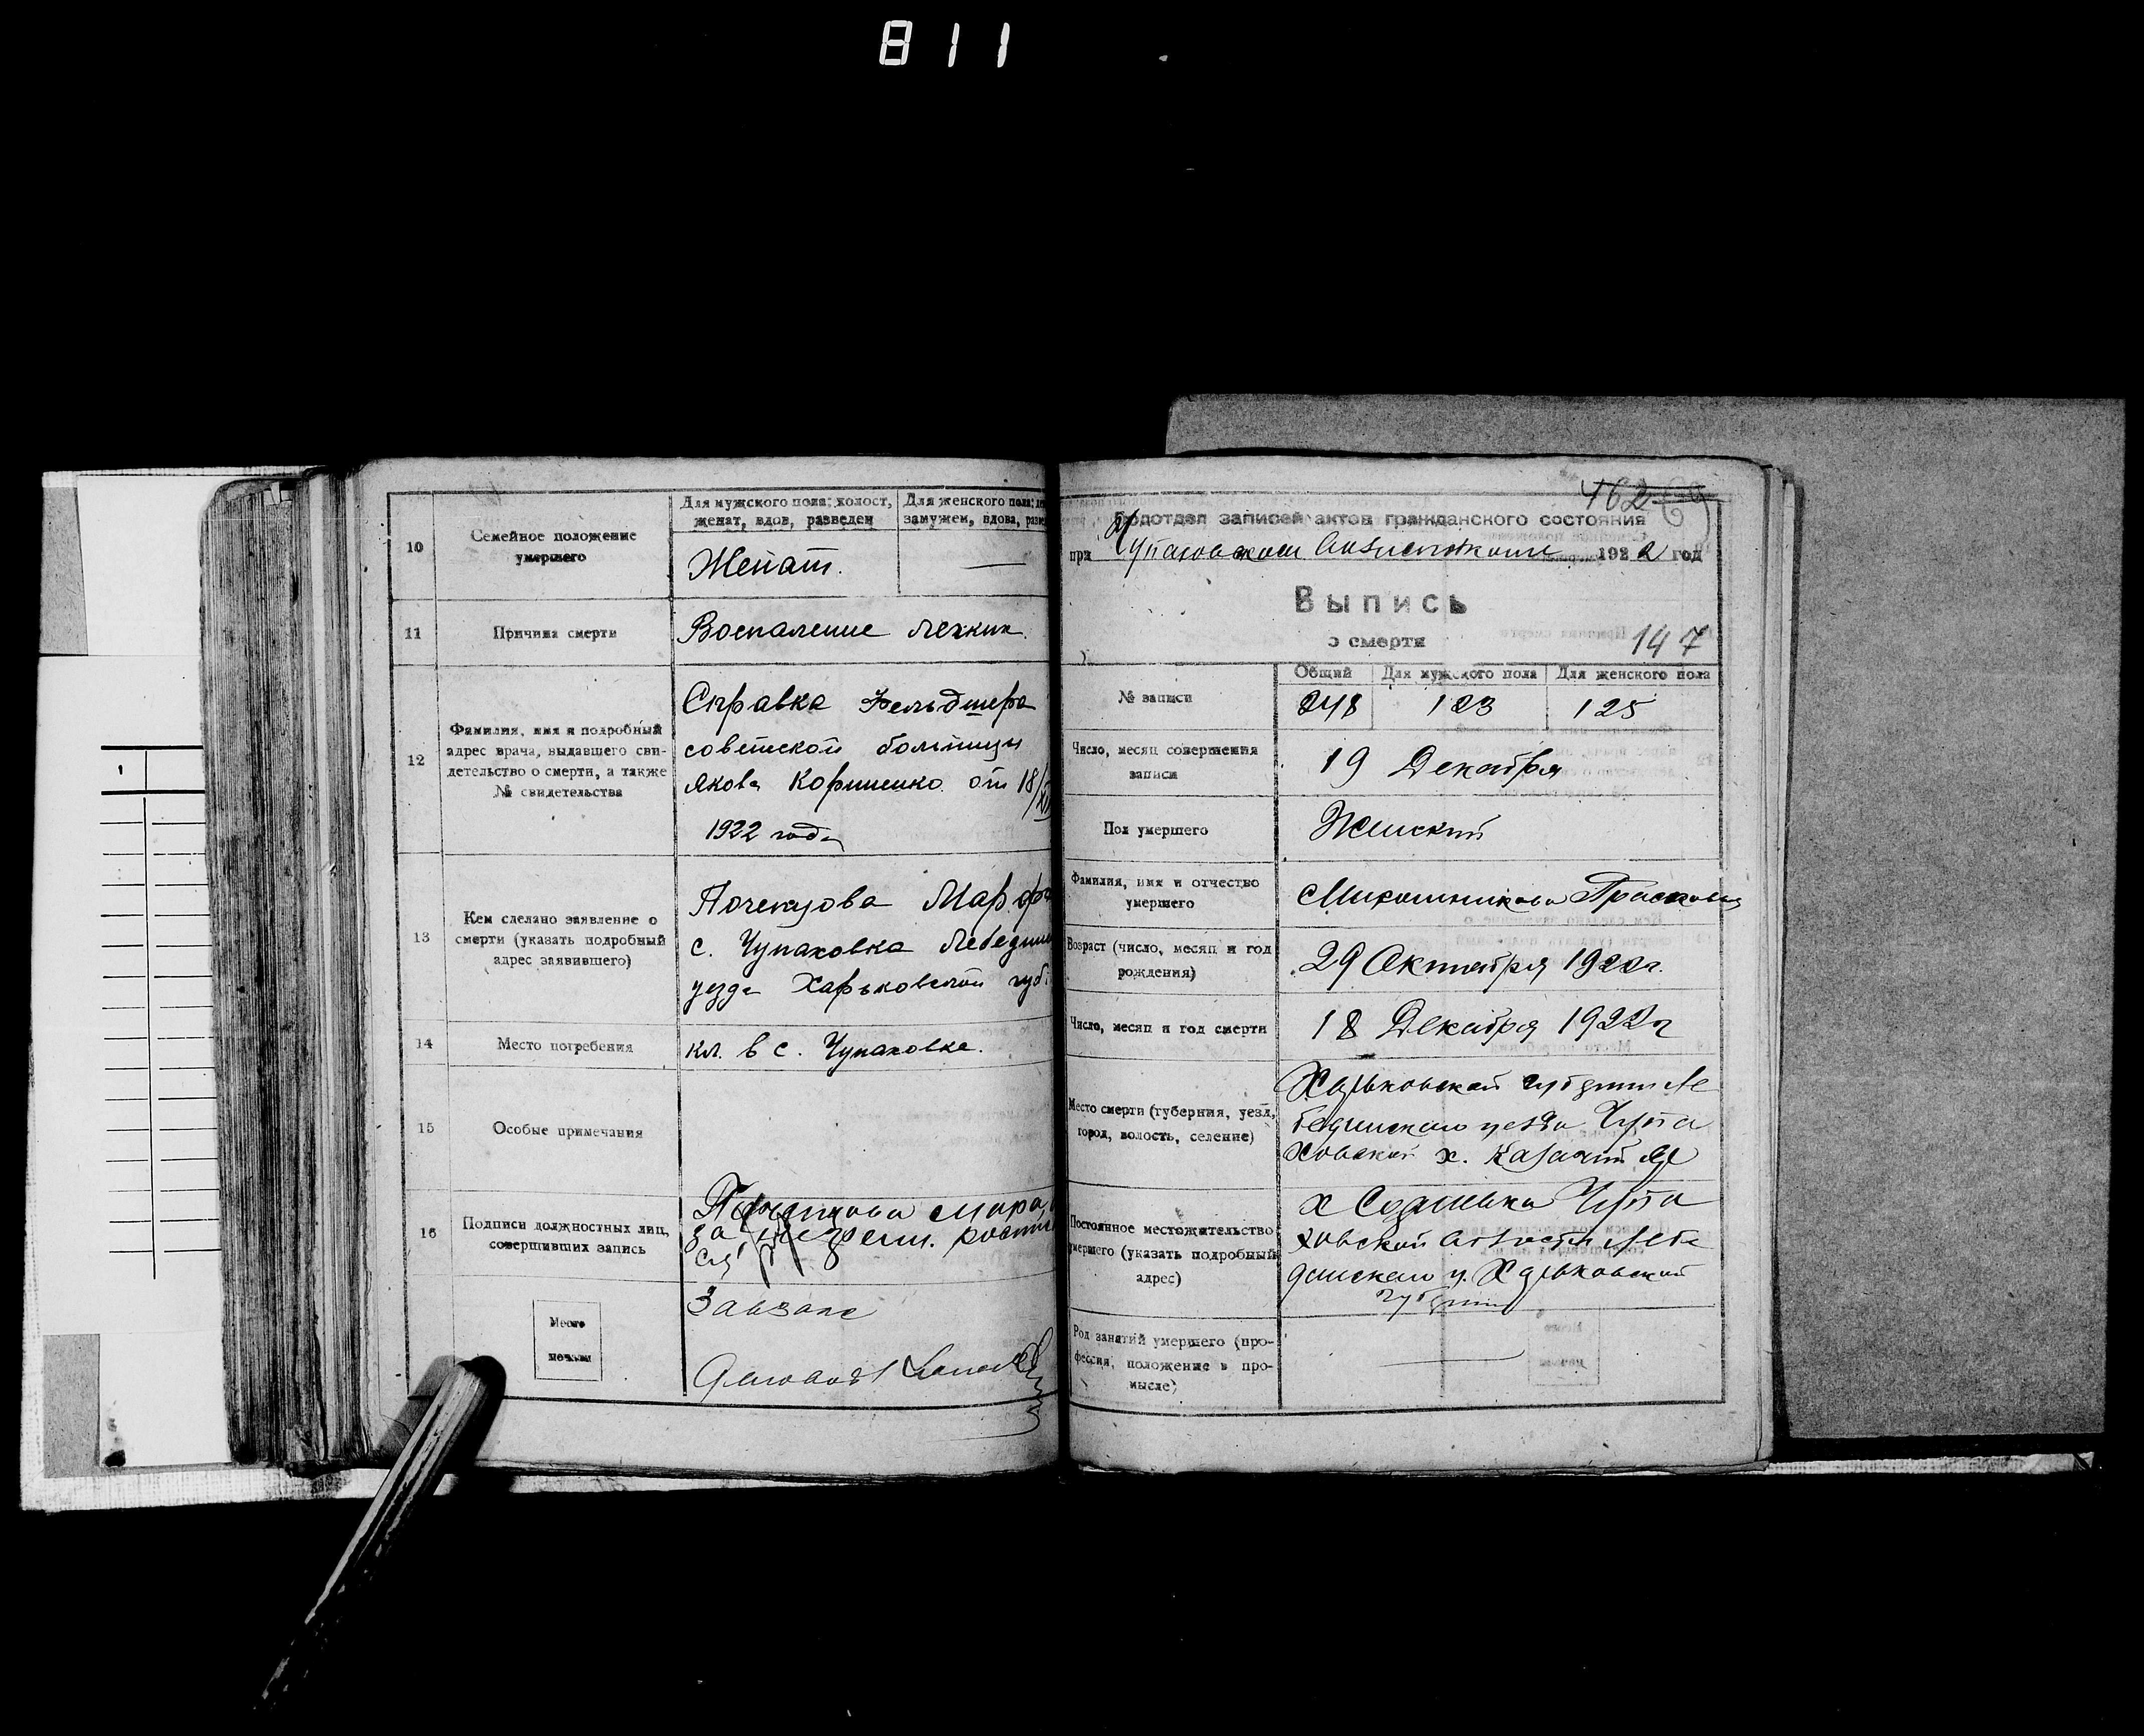 811
10
Семейное положение
умершего
Для мужского пола: холост,
женат, вдов, разведен
Для женского пола:
замужем, вдова,
Женат.
—
11
Причина смерти
Воспаление легких.
12
Фамилия, имя и подробный
адрес врача, выдавшего сви-
детельство о смерти, а также
№ свидетельства
Справка Фельдшера
советской больницы
Якова Корниенко от 18/XII
1922 года
13
Кем сделано заявление о
смерти (указать подробный
адрес заявившего)
Марфа
с. Чупаховка
уезда Харьковской губ.
14
Место погребения
кл. в с. Чупаховке.
15
Особые примечания
16
Подписи должностных лиц,
совершивших запись
за
ся
Завзапс
Место
печати
462
Подотдел записей актов гражданского состояния
при 1922 год
Выпись
о смерти
147
№ записи
Общий
Для мужского пола
Для женского пола
248
123
125
Число, месяц совершения
записи
19 Декабря
Пол умершего
Женский
Фамилия, имя и отчество
умершего
Возраст (число, месяц и год
рождения)
29 Октября 1922г.
Число, месяц и год смерти
18 Декабря 1922г
Место смерти (губерния, уезд,
город, волость, селение)
Харьковской губернии Ле
бединского уезда Чупа
ховской х. Казачий
Постоянное местожительство
умершего (указать подробный
адрес)
х Чупа
ховской волости Лебе
динского у. Харьковской
губернии
Род занятий умершего (про-
фессия, положение в про-
мысле)
—